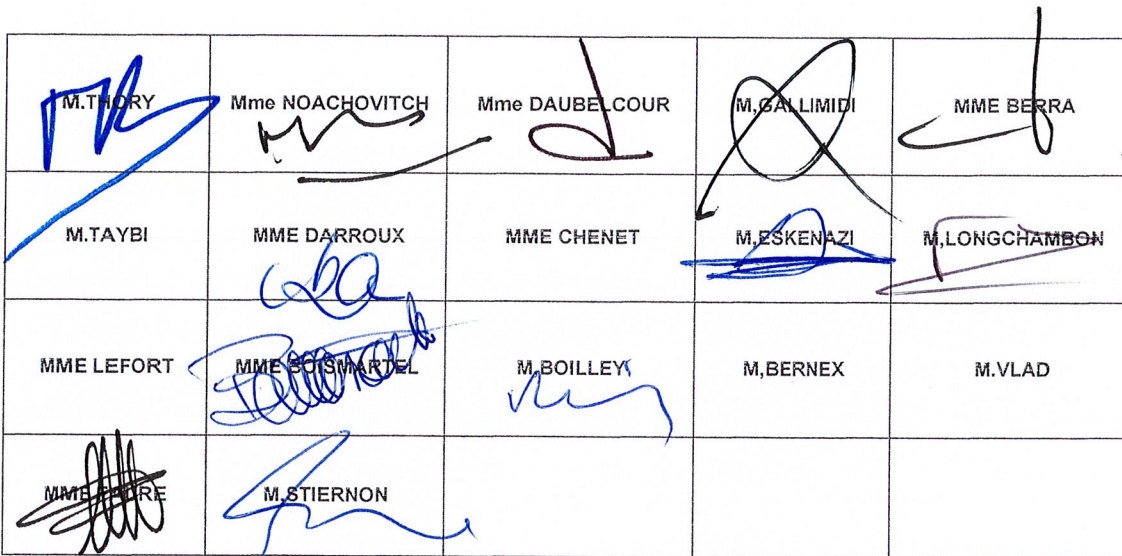 M.THORY
Mme NOACHOVITCH
Mme DAUBELCOUR
M,GALLIMIDI
MME BERRA
M.TAYBI
MME DARROUX
MME CHENET
M,ESKENAZI
M,LONGCHAMBON
MME LEFORT
MME BOISMARTEL
M.BOILLEY
M,BERNEX
M.VLAD
MME
M,STIERNON